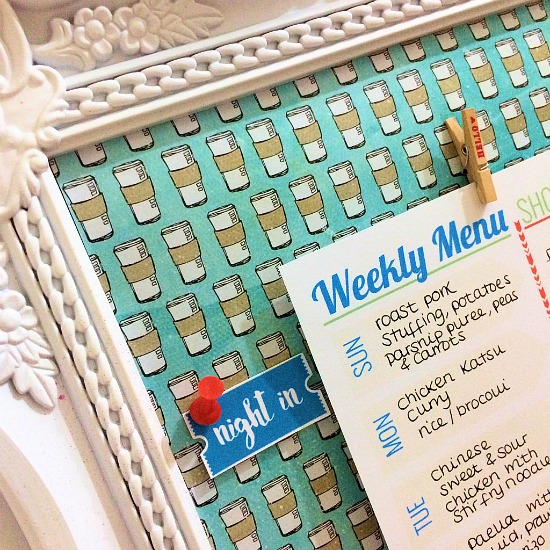 Weekly Menu
SUN
roast pork
stuffing, potatoes
parsnip puree, peas
& carrots
MON
chicken katsu
curry
rice / brocolli
TUE
Chinese
sweet & sour
chicken with
stir fry noodle
paella with
night in